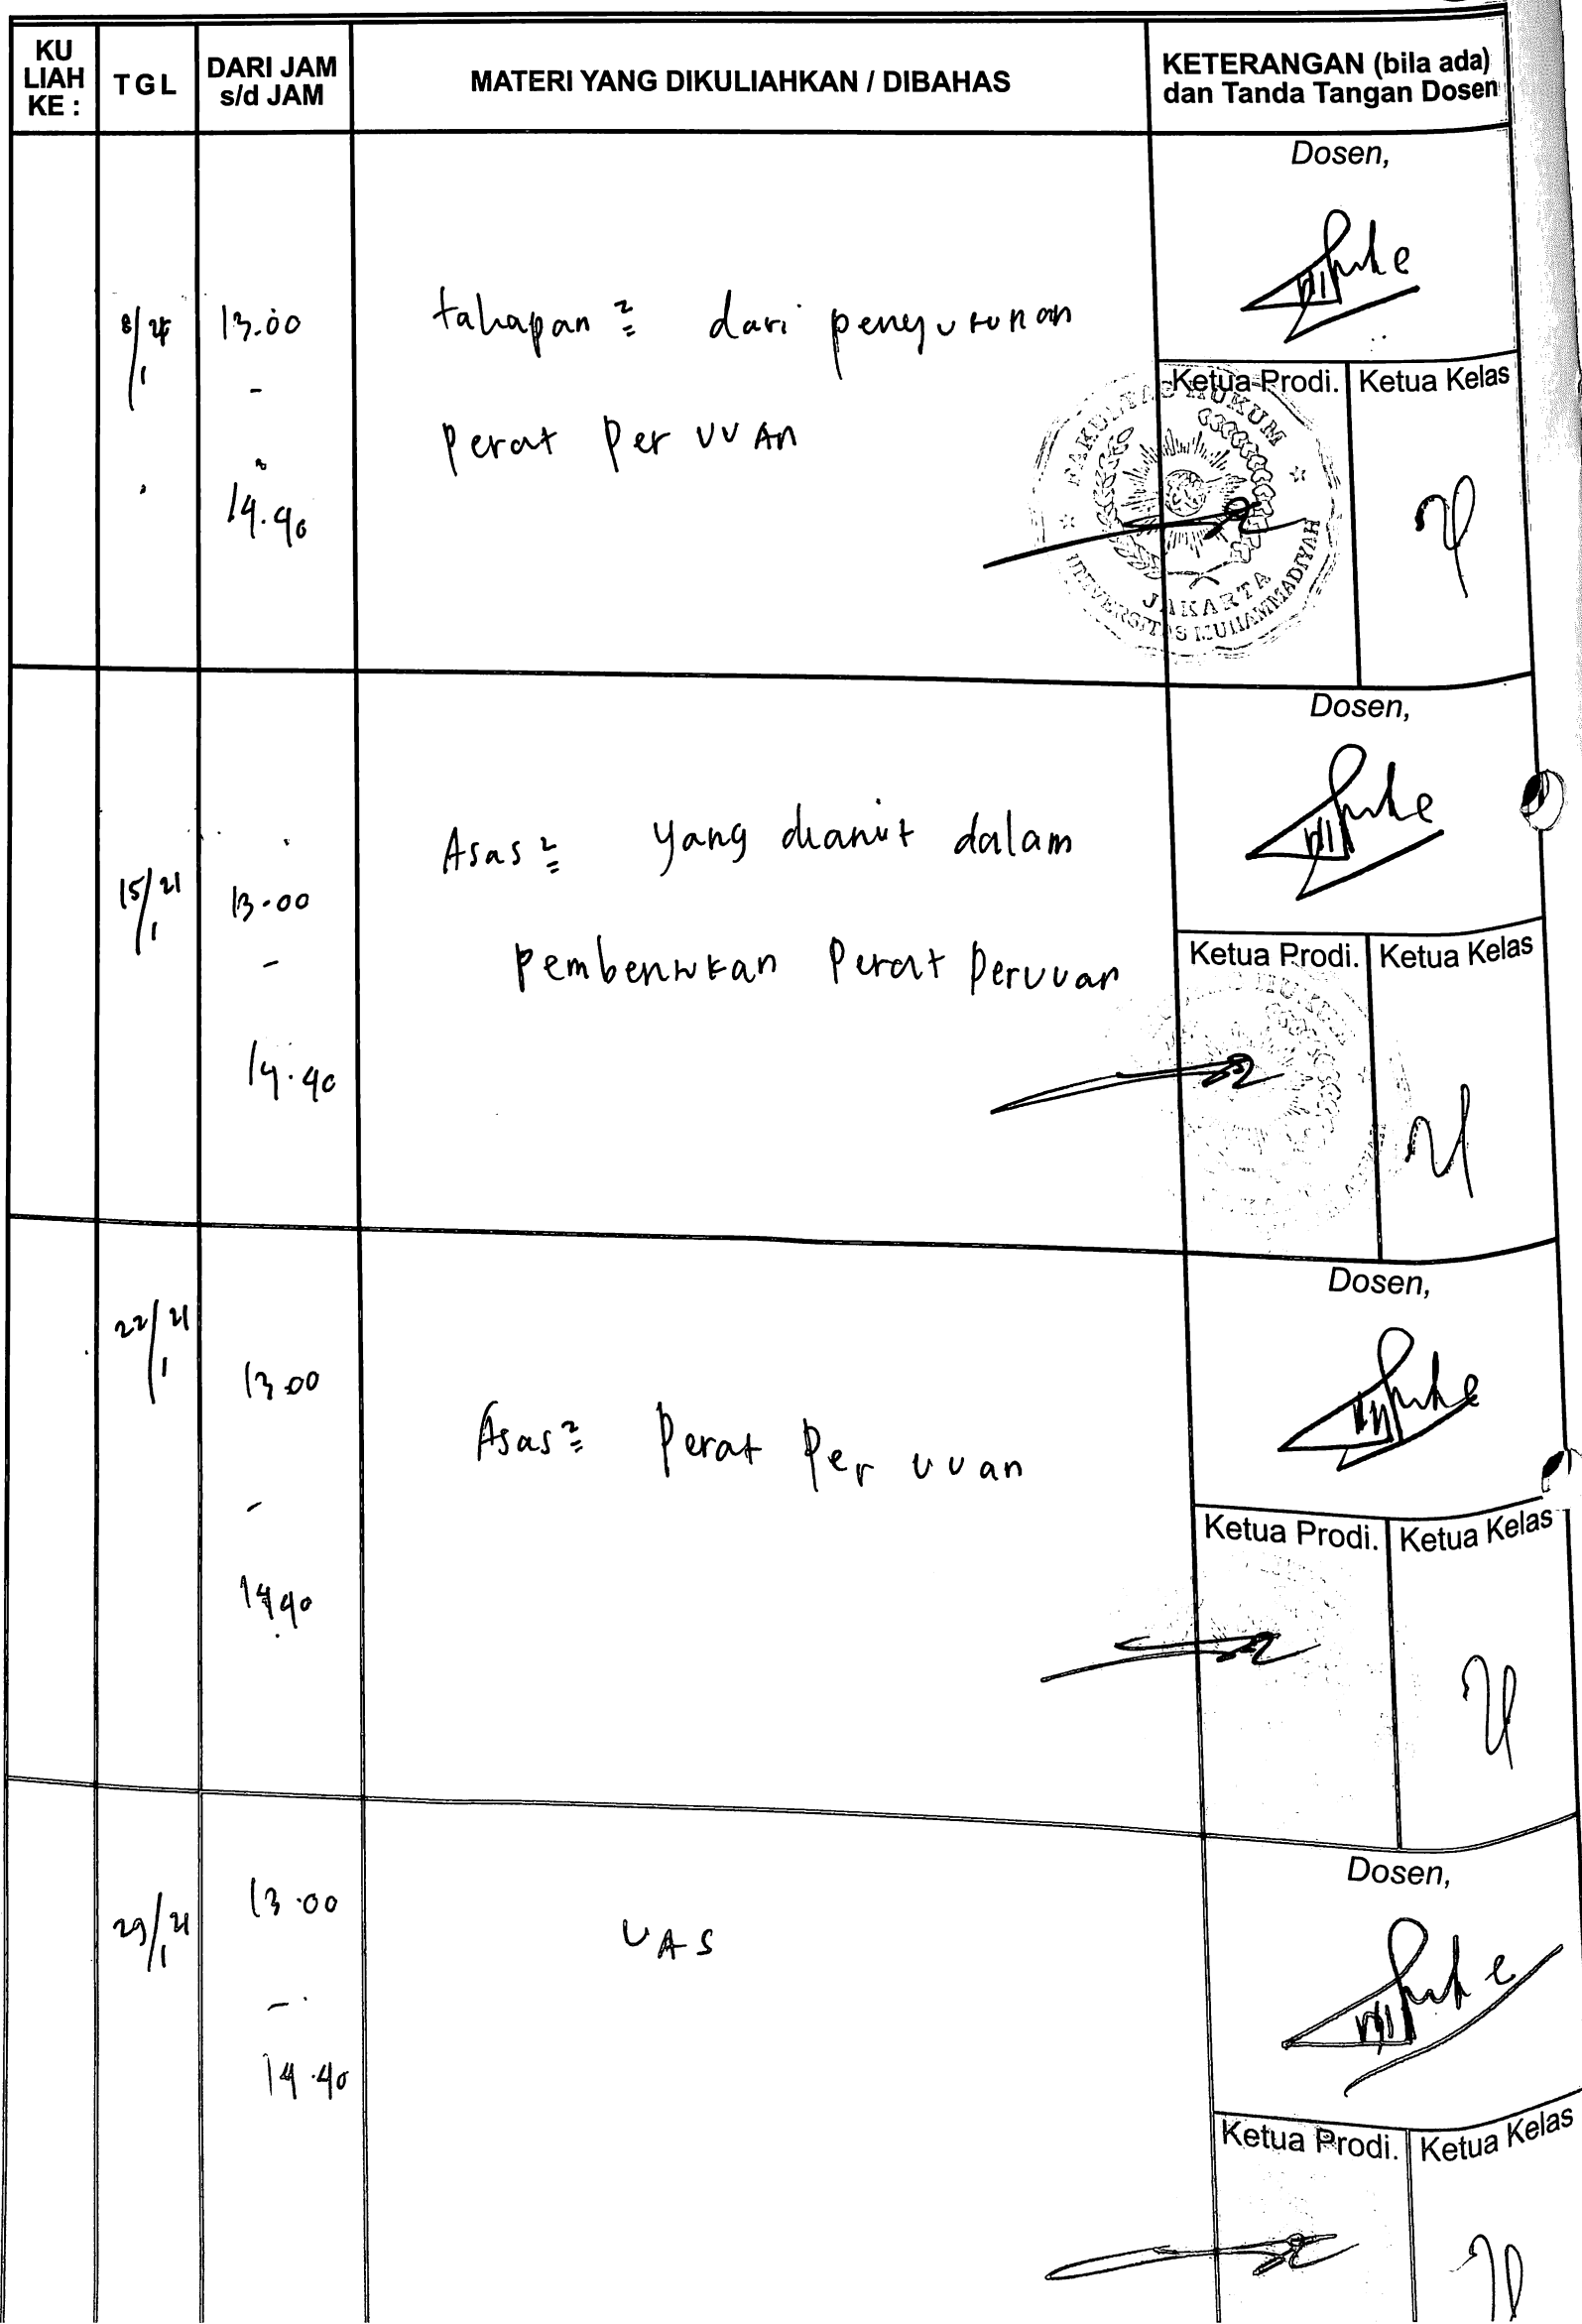 KU LIAH KE :
TGL
DARI JAM s/d JAM
MATERI YANG DIKULIAHKAN / DIBAHAS
KETERANGAN (bila ada) dan Tanda Tangan Dosen
Dosen,
8/1 21
13.00
-
14.40
tahapan 2 dari penyusunan
perat Per UUAN
Ketua Prodi.
Ketua Kelas
FAKULTAS HUKUM
UNIVERSITAS MUHAMMADIYAH
JAKARTA
Dosen,
15/1 21
13.00
-
14.40
Asas 2 yang dianut dalam
Pembentukan Perat Peruuan
Ketua Prodi.
Ketua Kelas
Dosen,
22/1 21
13.00
-
14.40
Asas 2 Perat Per uuan
Ketua Prodi.
Ketua Kelas
Dosen,
29/1 21
13.00
-
14.40
UAS
Ketua Prodi.
Ketua Kelas